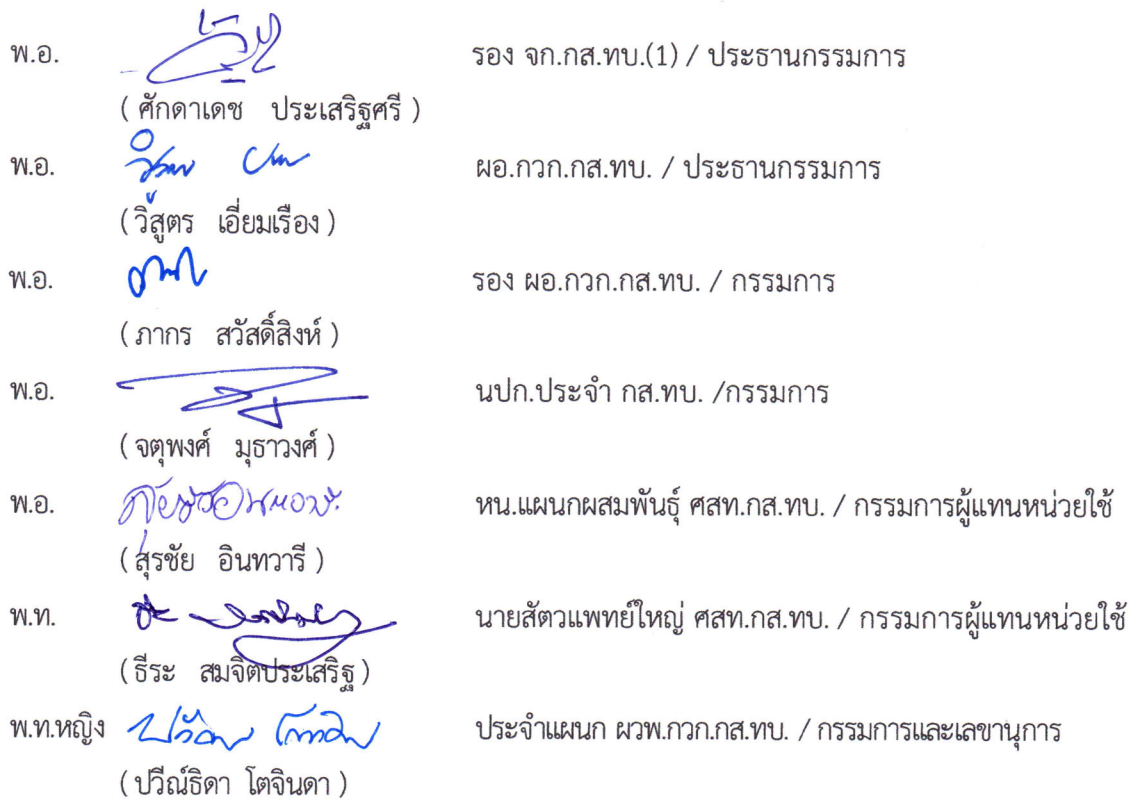 พ.อ. รอง จก.กส.ทบ.(1) / ประธานกรรมการ
( ศักดาเดช ประเสริฐศรี )
พ.อ. ผอ.กวก.กส.ทบ. / ประธานกรรมการ
( วิสูตร เอี่ยมเรือง )
พ.อ. รอง ผอ.กวก.กส.ทบ. / กรรมการ
( ภากร สวัสดิ์สิงห์ )
พ.อ. นปก.ประจำ กส.ทบ. /กรรมการ
( จตุพงศ์ มุธาวงศ์ )
พ.อ. หน.แผนกผสมพันธุ์ ศสท.กส.ทบ. / กรรมการผู้แทนหน่วยใช้
( สุรชัย อินทวารี )
พ.ท. นายสัตวแพทย์ใหญ่ ศสท.กส.ทบ. / กรรมการผู้แทนหน่วยใช้
( ธีระ สมจิตประเสริฐ )
พ.ท.หญิง ประจำแผนก ผวพ.กวก.กส.ทบ. / กรรมการและเลขานุการ
( ปวีณ์ธิดา โตจินดา )